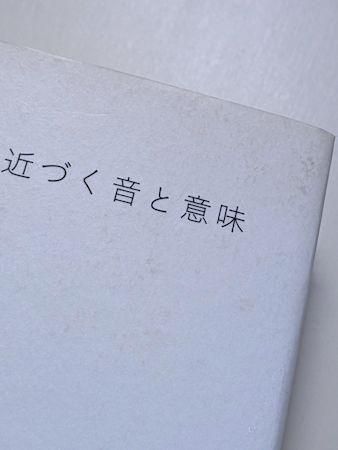 近づく音と意味